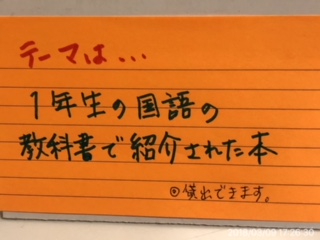 テーマは...
1年生の国語の
教科書で紹介された本
◎貸出できます。